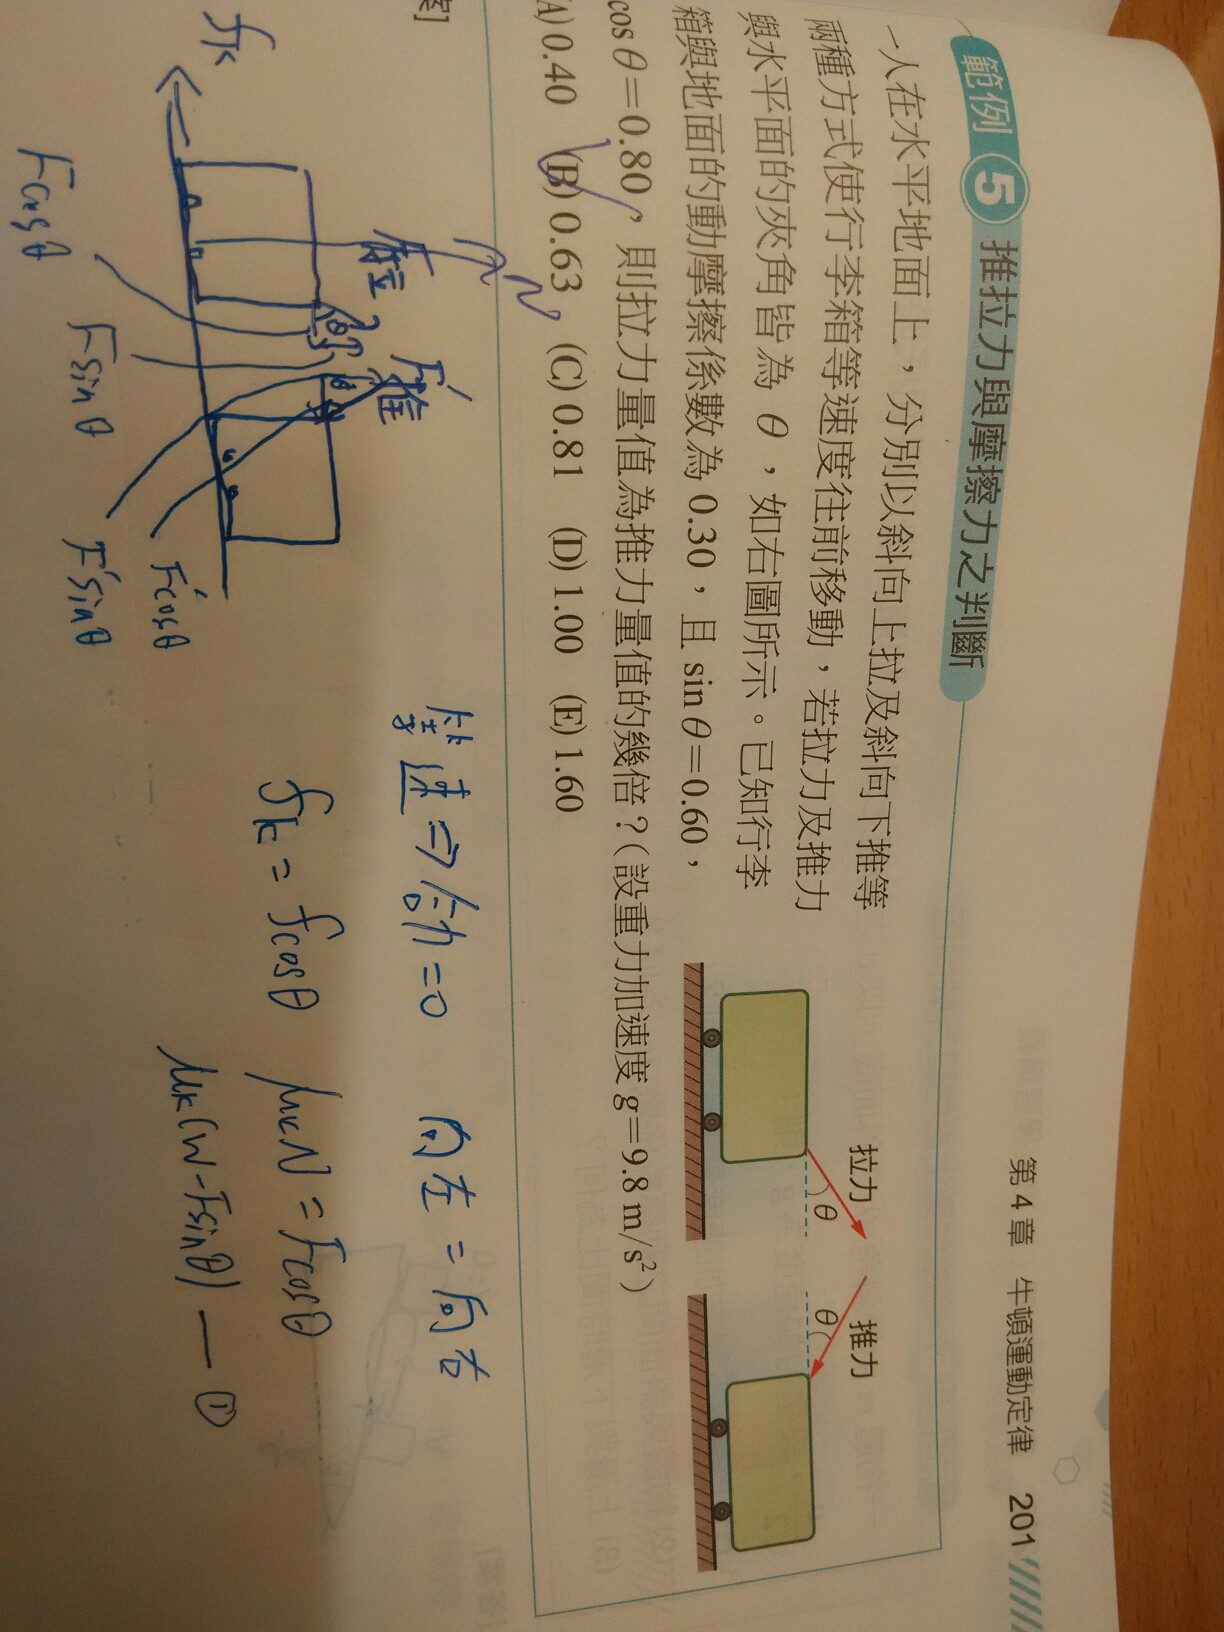 第 4 章 牛頓運動定律 201
範例 5 推拉力與摩擦力之判斷
一人在水平地面上，分別以斜向上拉及斜向下推等
兩種方式使行李箱等速度往前移動，若拉力及推力
與水平面的夾角皆為 θ，如右圖所示。已知行李
箱與地面的動摩擦係數為 0.30，且 sin θ=0.60，
cos θ=0.80，則拉力量值為推力量值的幾倍？(設重力加速度 g=9.8 m/s²)
(A) 0.40 (B) 0.63 (C) 0.81 (D) 1.00 (E) 1.60
拉力
θ
推力
θ
N
F'推
θ
θ
fk
Fcosθ
Fsinθ
F'sinθ
F'cosθ
等速⇒合力=0 向左=向右
fk=fcosθ μkN=Fcosθ
μk(W-Fsinθ)—①